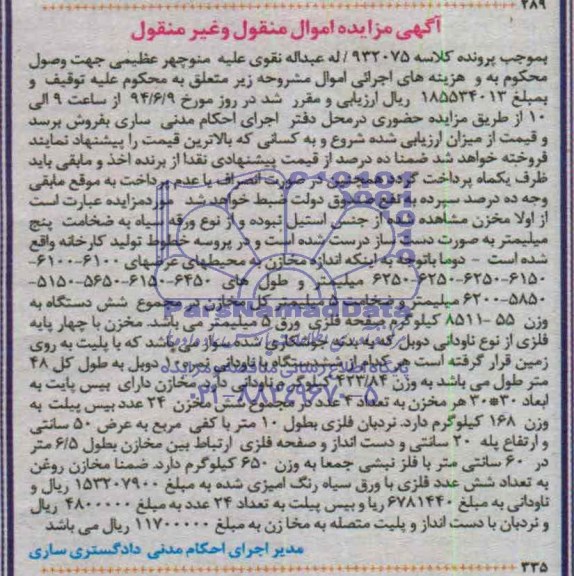 ۲۸۹
آگهی مزایده اموال منقول وغیر منقول
بموجب پرونده کلاسه ۹۳۲۰۷۵ / له عبداله نقوی علیه منوچهر عظیمی جهت وصول
محکوم به و هزینه های اجرائی اموال مشروحه زیر متعلق به محکوم علیه توقیف و
بمبلغ ۱۸۵۵۳۴۰۱۳ ریال ارزیابی و مقرر شد در روز مورخ ۹۴/۶/۹ از ساعت ۹ الی
۱۰ از طریق مزایده حضوری درمحل دفتر اجرای احکام مدنی ساری بفروش برسد
و قیمت از میزان ارزیابی شده شروع و به کسانی که بالاترین قیمت را پیشنهاد نمایند
فروخته خواهد شد ضمنا ده درصد از قیمت پیشنهادی نقدا از برنده اخذ و مابقی باید
ظرف یکماه پرداخت گردد همچنین در صورت انصراف یا عدم پرداخت به موقع مابقی
وجه ده درصد سپرده به نفع صندوق دولت ضبط خواهد شد موردمزایده عبارت است
از اولا مخزن مشاهده شده از جنس استیل نبوده و از نوع ورقه سیاه به ضخامت پنج
میلیمتر به صورت دست ساز درست شده است و در پروسه خطوط تولید کارخانه واقع
شده است - دوما باتوجه به اینکه اندازه مخازن به محیطهای عرضهای ۶۱۰۰-۶۱۰۰-
۶۱۵۰-۶۲۵۰-۶۲۵۰-۶۲۵۰ میلیمتر و طول های ۶۴۵۰-۶۱۵-۵۶۵۰-۵۱۵۰-
۵۸۵۰-۶۲۰۰ میلیمتر و ضخامت ۵ میلیمتر کل مخازن در مجموع شش دستگاه به
وزن ۵۵ -۸۵۱۱ کیلوگرم صفحه فلزی ورق ۵ میلیمتر می باشد. مخزن با چهار پایه
فلزی از نوع ناودانی دوبل که به بدنه جوشکاری شده استوار می باشد که با پلیت به روی
زمین قرار گرفته است هر کدام از شش دستگاه با ناودانی نمره ۱۰ دوبل به طول کل ۴۸
متر طول می باشد به وزن ۴۲۳/۸۴ کیلوگرم ناودانی دارد. مخازن دارای بیس پایت به
ابعاد ۳۰*۳۰ هر مخزن به تعداد ۴ عدد در مجموع شش مخزن ۲۴ عدد بیس پیلت به
وزن ۱۶۸ کیلوگرم دارد. نردبان فلزی بطول ۱۰ متر با کفی مربع به عرض ۵۰ سانتی
و ارتفاع پله ۲۰ سانتی و دست انداز و صفحه فلزی ارتباط بین مخازن بطول ۶/۵ متر
در ۶۰ سانتی متر با فلز نبشی جمعا به وزن ۶۵۰ کیلوگرم دارد. ضمنا مخازن روغن
به تعداد شش عدد فلزی با ورق سیاه رنگ امیزی شده به مبلغ ۱۵۳۲۰۷۹۰۰ ریال و
ناودانی به مبلغ ۶۷۸۱۴۴۰ ریا و بیس پیلت به تعداد ۲۴ عدد به مبلغ ۴۸۰۰۰۰۰ ریال
و نردبان با دست انداز و پلیت متصله به مخازن به مبلغ ۱۱۷۰۰۰۰۰ ریال می باشد
مدیر اجرای احکام مدنی دادگستری ساری
۳۳۵
ParsNamadData
پایگاه اطلاع رسانی مناقصه و مزایده
۰۲۱-۸۸۳۴۹۶۷۰-۵